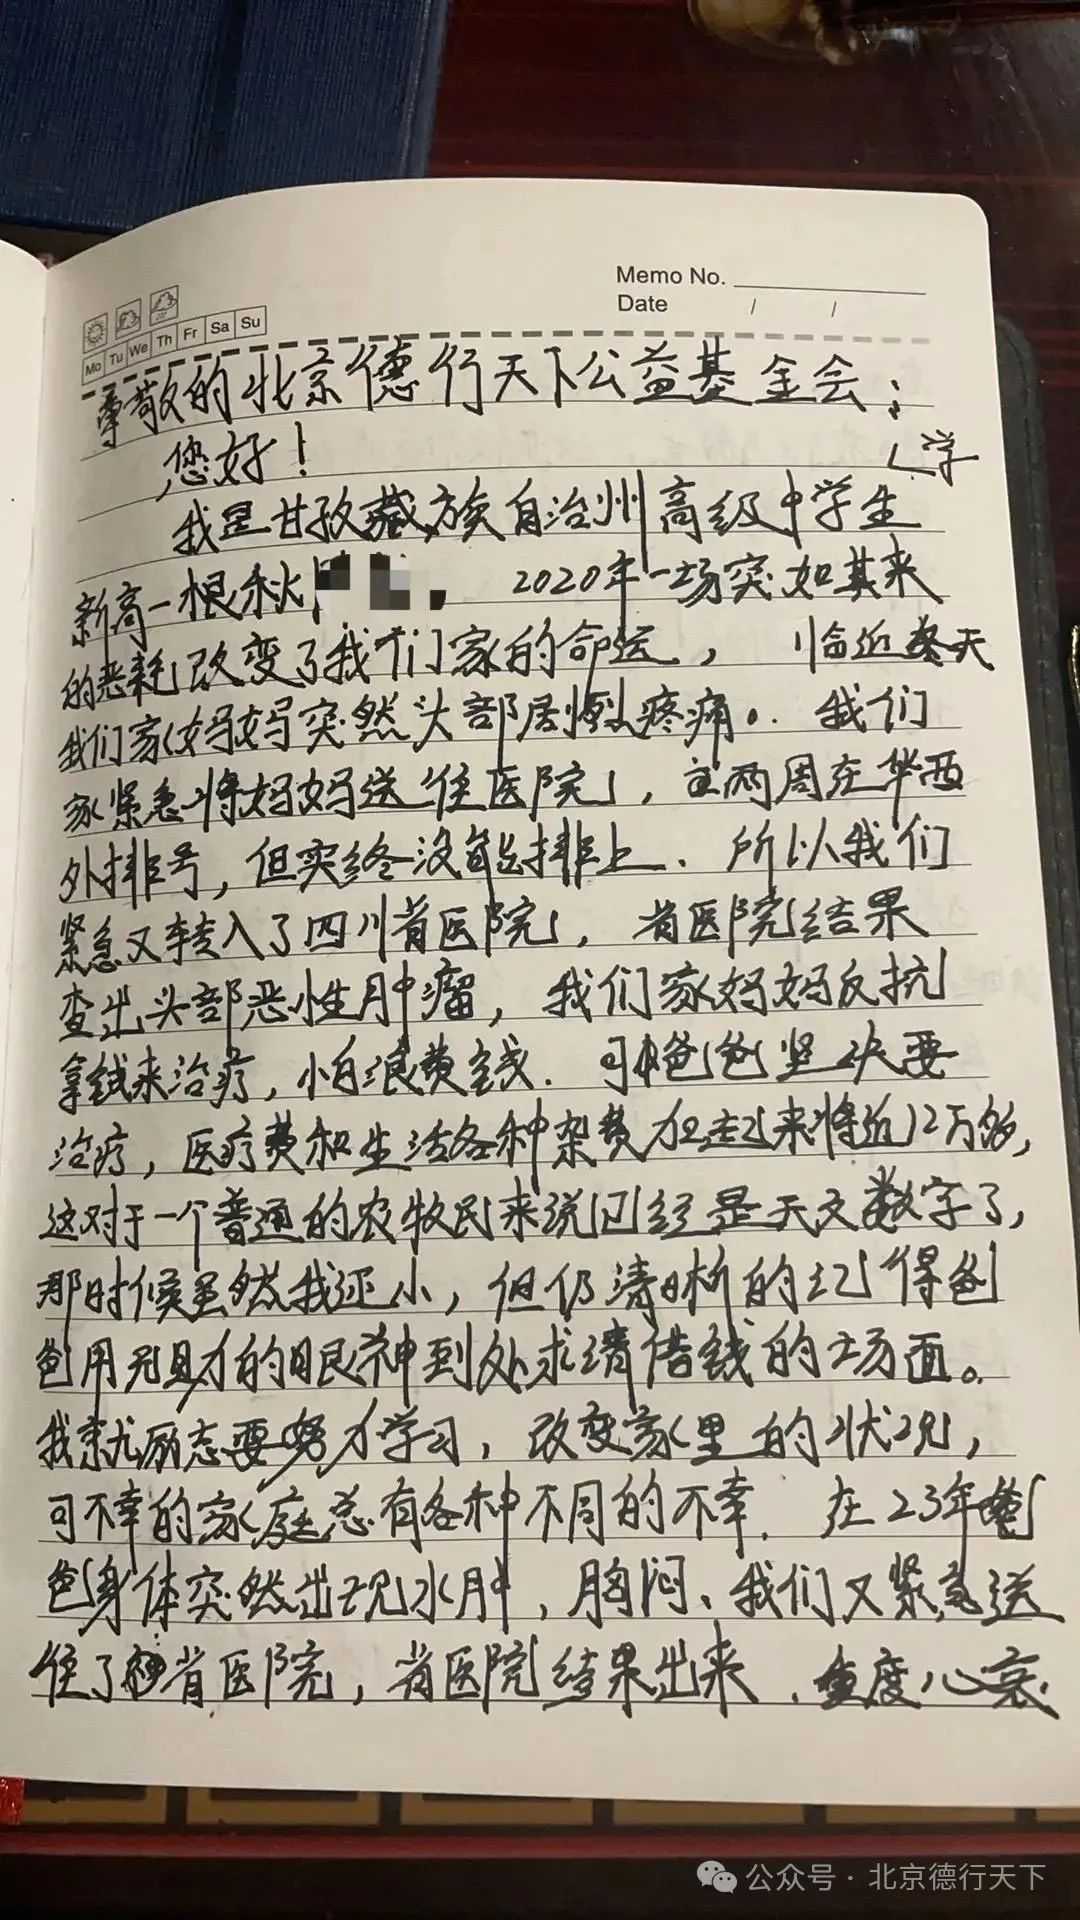 Memo No.
Date / /
Mo Tu We Th Fr Sa Su
尊敬的北京德行天下公益基金会：
您好！
学
我是甘孜藏族自治州高级中学生
新高一根秋 2020年一场突如其来
的恶耗改变了我们家的命运，临近冬天
我们家妈妈突然头部剧烈疼痛。我们
家紧急将妈妈送往医院，主两周在华西
外排号，但实终没能排上．所以我们
紧急又转入了四川省医院，省医院结果
查出头部恶性肿瘤，我们家妈妈反抗
拿钱来治疗，怕浪费钱．可爸爸坚决要
治疗，医疗费和生活各种杂费加起来将近12万多，
这对于一个普通的农牧民来说已经是天文数字了，
那时候虽然我还小，但仍清晰的记得爸
爸用无助的眼神到处求请借钱的场面。
我就励志要努力学习，改变家里的状况，
可不幸的家庭总有各种不同的不幸．在23年爸
爸身体突然出现水肿，胸闷、我们又紧急送
往了省医院，省医院结果出来．重度心衰．
公众号·北京德行天下